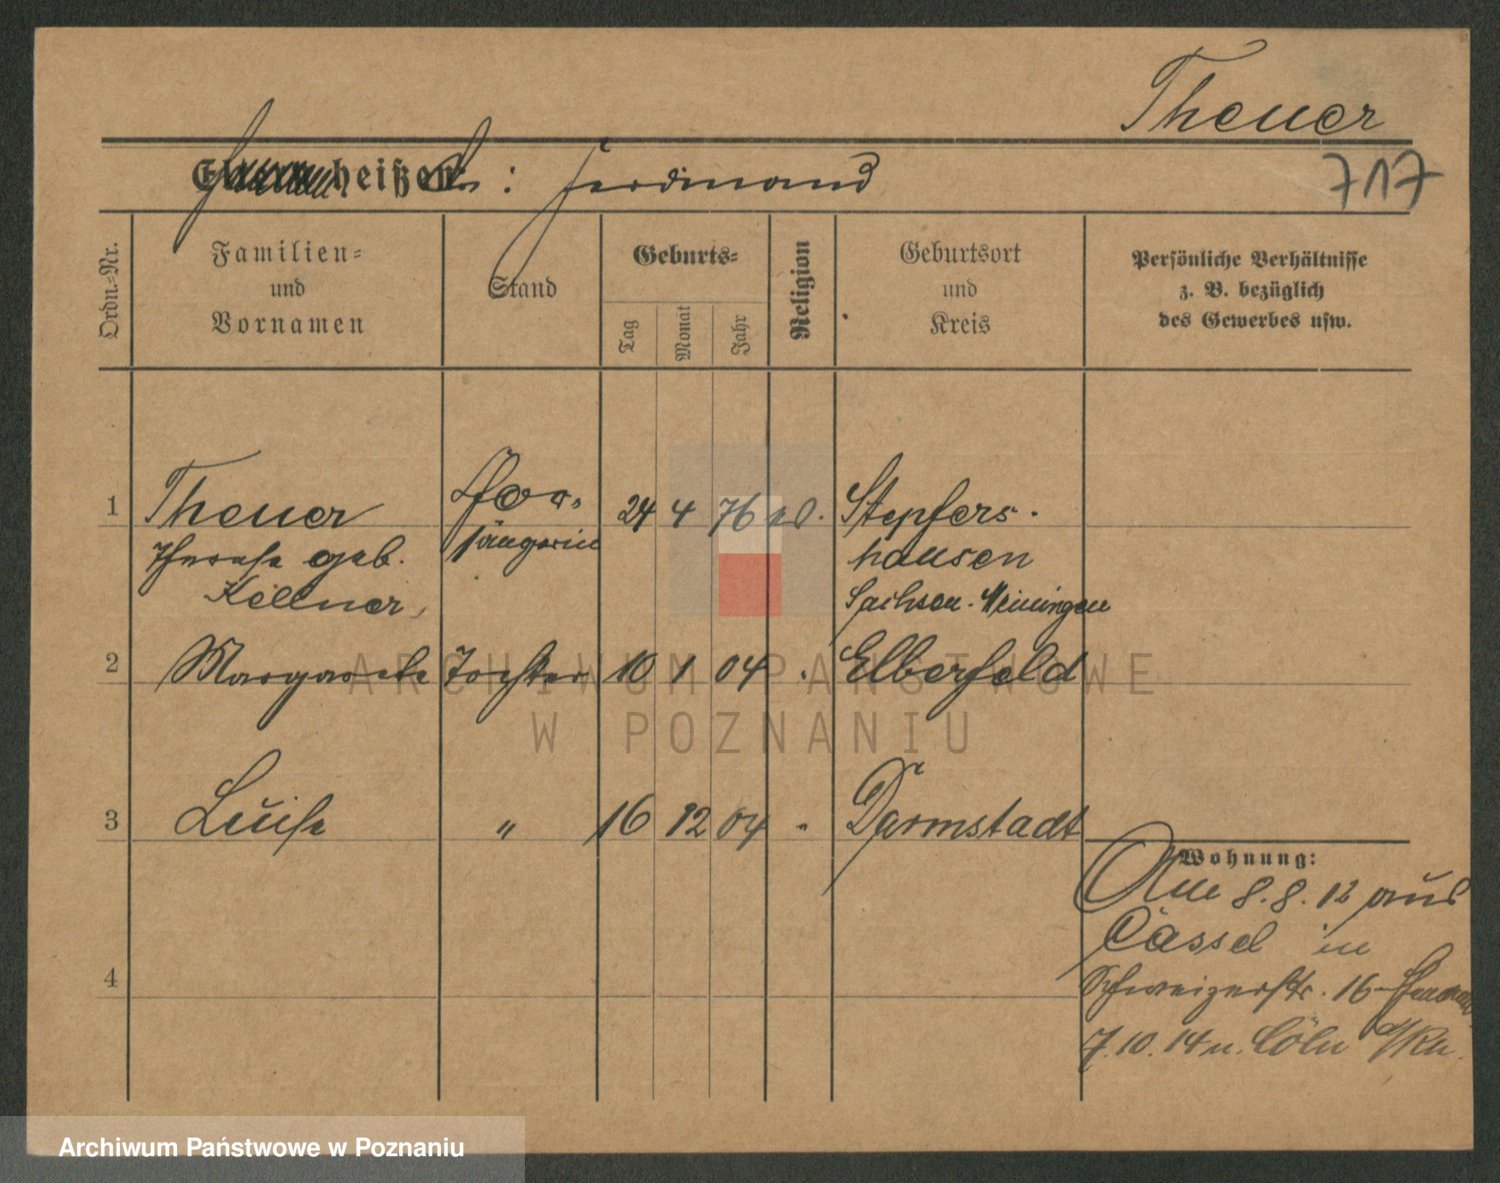 Theuer
717
heißen: Ferdinand
Ordn.-Nr.
Familien-
und
Vornamen
Stand
Geburts-
Tag
Monat
Jahr
Religion
Geburtsort
und
Kreis
Persönliche Verhältnisse
z. B. bezüglich
des Gewerbes usw.
1 Theuer 24 4 76 Stepfers-
sängerin hausen
geb.
Kellner Sachsen-Meiningen
2 Margarete Tochter 10 1 04 Elberfeld
3 Luise " 16 12 04 " Darmstadt
4
Wohnung:
8.8.12 aus
Cassel in
Schweizerstr. 16
7.10.14 n. Cöln a/Rh.
ARCHIWUM PAŃSTWOWE
W POZNANIU
Archiwum Państwowe w Poznaniu